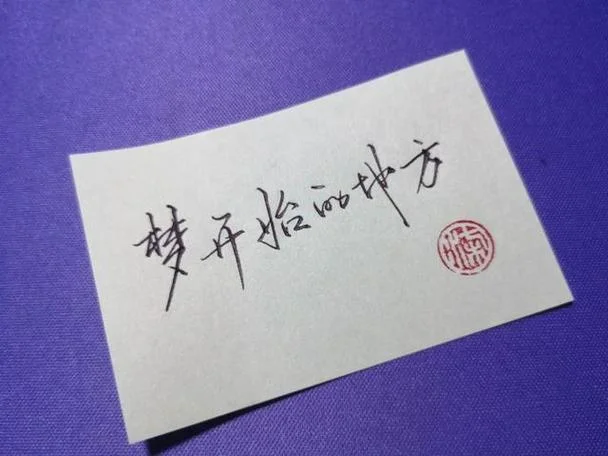 梦开始的地方